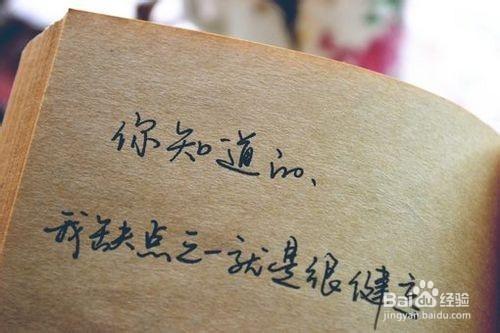 你知道的、
我缺点之一就是很健忘
Baidu经验
jingyan.baidu.com